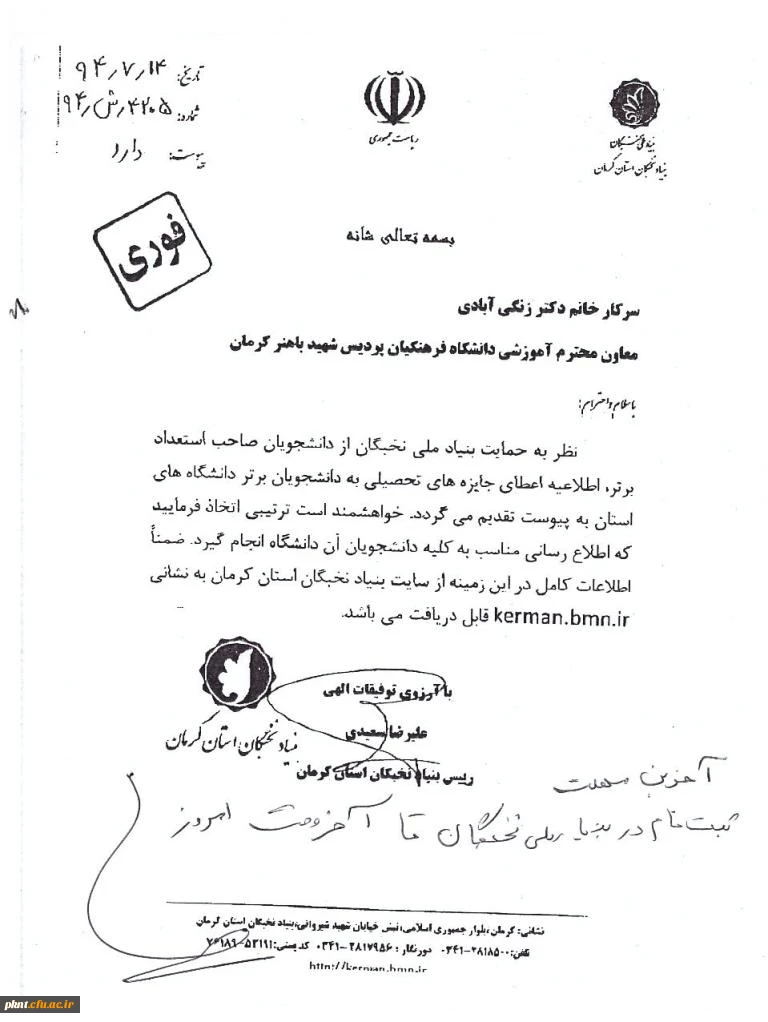 تاریخ: ۹۴/۷/۱۴
شماره: ۹۴/ش/۴۲۰۵
پیوست: دارد
ریاست جمهوری
بنیاد ملی نخبگان
بنیاد نخبگان استان کرمان
فوری
بسمه تعالی شانه
سرکار خانم دکتر زنگی آبادی
معاون محترم آموزشی دانشگاه فرهنگیان پردیس شهید باهنر کرمان
با سلام و احترام؛
نظر به حمایت بنیاد ملی نخبگان از دانشجویان صاحب استعداد
برتر، اطلاعیه اعطای جایزه های تحصیلی به دانشجویان برتر دانشگاه های
استان به پیوست تقدیم می گردد. خواهشمند است ترتیبی اتخاذ فرمایید
که اطلاع رسانی مناسب به کلیه دانشجویان آن دانشگاه انجام گیرد. ضمناً
اطلاعات کامل در این زمینه از سایت بنیاد نخبگان استان کرمان به نشانی
kerman.bmn.ir قابل دریافت می باشد.
با آرزوی توفیقات الهی
علیرضا سعیدی
رییس بنیاد نخبگان استان کرمان
بنیاد نخبگان استان کرمان
آخرین مهلت
ثبت نام در بنیاد ملی نخبگان تا آخر وقت امروز
نشانی: کرمان، بلوار جمهوری اسلامی، نبش خیابان شهید شیروانی، بنیاد نخبگان استان کرمان
تلفن: ۰۳۴۱-۲۸۱۸۵۰۰ دورنگار: ۰۳۴۱-۲۸۱۷۹۵۶ کد پستی: ۷۶۱۸۹-۵۳۱۹۱
http://kerman.bmn.ir
pknt.cfu.ac.ir